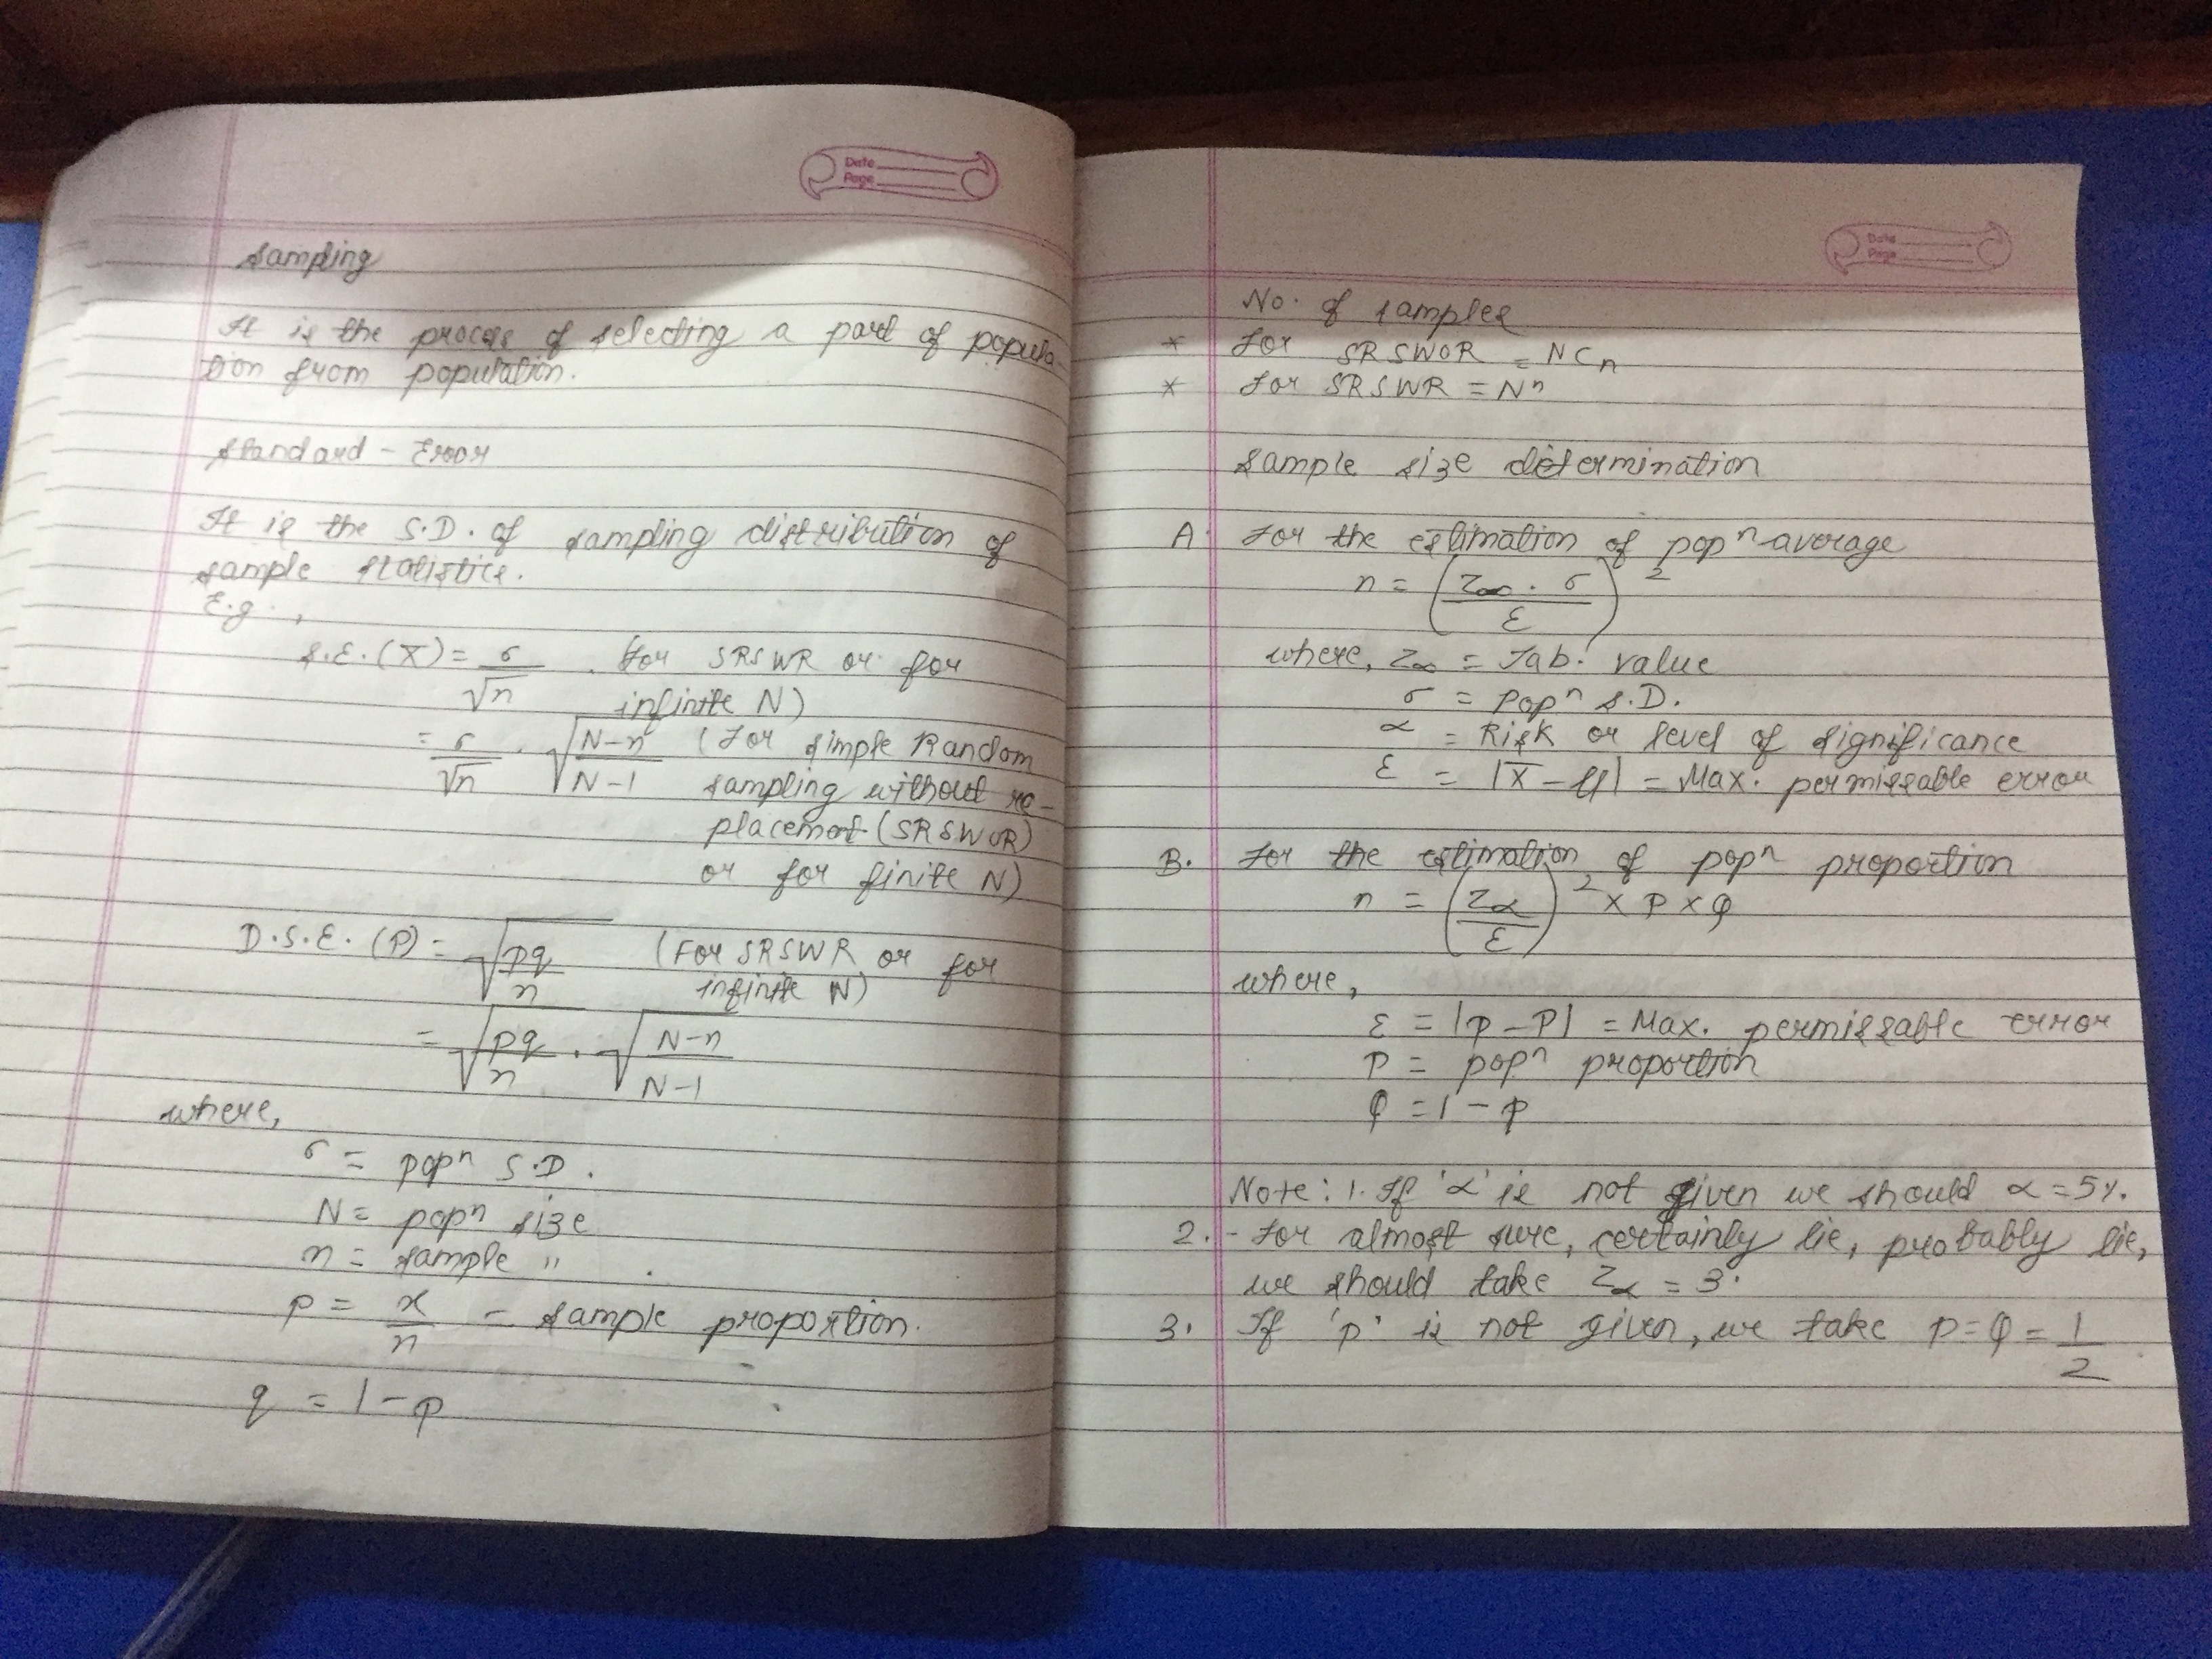 Date
Page
Sampling
It is the process of selecting a part of popula-
tion from population.
Standard - Error
It is the S.D. of sampling distribution of
sample statistics.
E.g.,
S.E. (X) = σ/√n . for SRSWR or for
infinite N)
= σ/√n . √(N-n/N-1) (For Simple Random
sampling without re-
placement (SRSWOR)
or for finite N)
D.S.E. (P) = √(pq/n) (For SRSWR or for
infinite N)
= √(pq/n) . √(N-n/N-1)
where,
σ = popⁿ S.D.
N = popⁿ size
n = sample "
p = x/n = sample proportion.
q = 1-p
Date
Page
No. of samples
* For SRSWOR = NCn
* For SRSWR = Nⁿ
Sample size determination
A. For the estimation of popⁿ average
n = (Z∞ . σ / ε)²
where, Z∞ = Tab. value
σ = popⁿ S.D.
α = Risk or level of significance
ε = |X̅ - μ| = Max. permissable error
B. For the estimation of popⁿ proportion
n = (Zα/ε)² × P × Q
where,
ε = |p-P| = Max. permissable error
P = popⁿ proportion
Q = 1-p
Note: 1. If 'α' is not given we should α = 5%.
2. - For almost sure, certainly lie, probably lie,
we should take Zα = 3.
3. If 'p' is not given, we take p = Q = 1/2